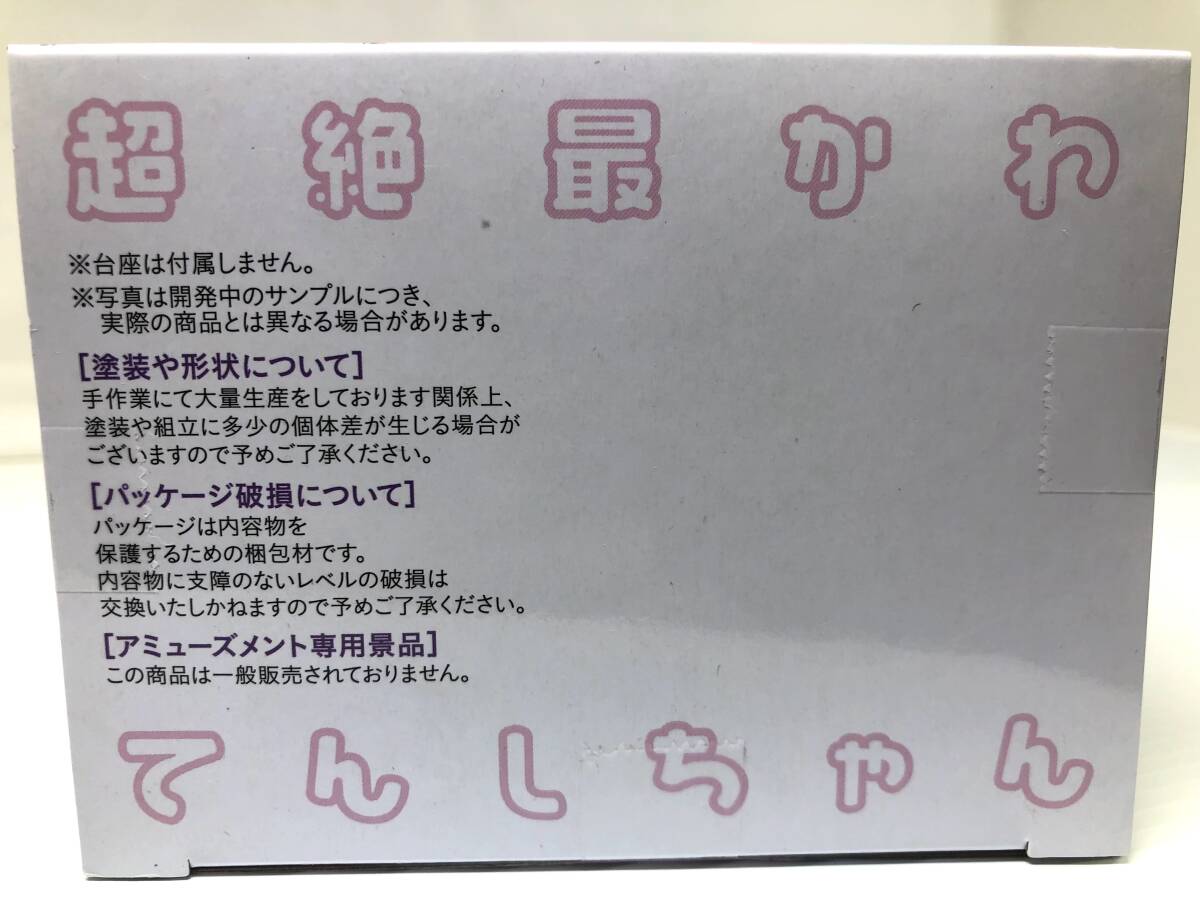 超絶最かわ
※台座は付属しません。
※写真は開発中のサンプルにつき、
実際の商品とは異なる場合があります。
[塗装や形状について]
手作業にて大量生産をしております関係上、
塗装や組立に多少の個体差が生じる場合が
ございますので予めご了承ください。
[パッケージ破損について]
パッケージは内容物を
保護するための梱包材です。
内容物に支障のないレベルの破損は
交換いたしかねますので予めご了承ください。
[アミューズメント専用景品]
この商品は一般販売されておりません。
てんしちゃん